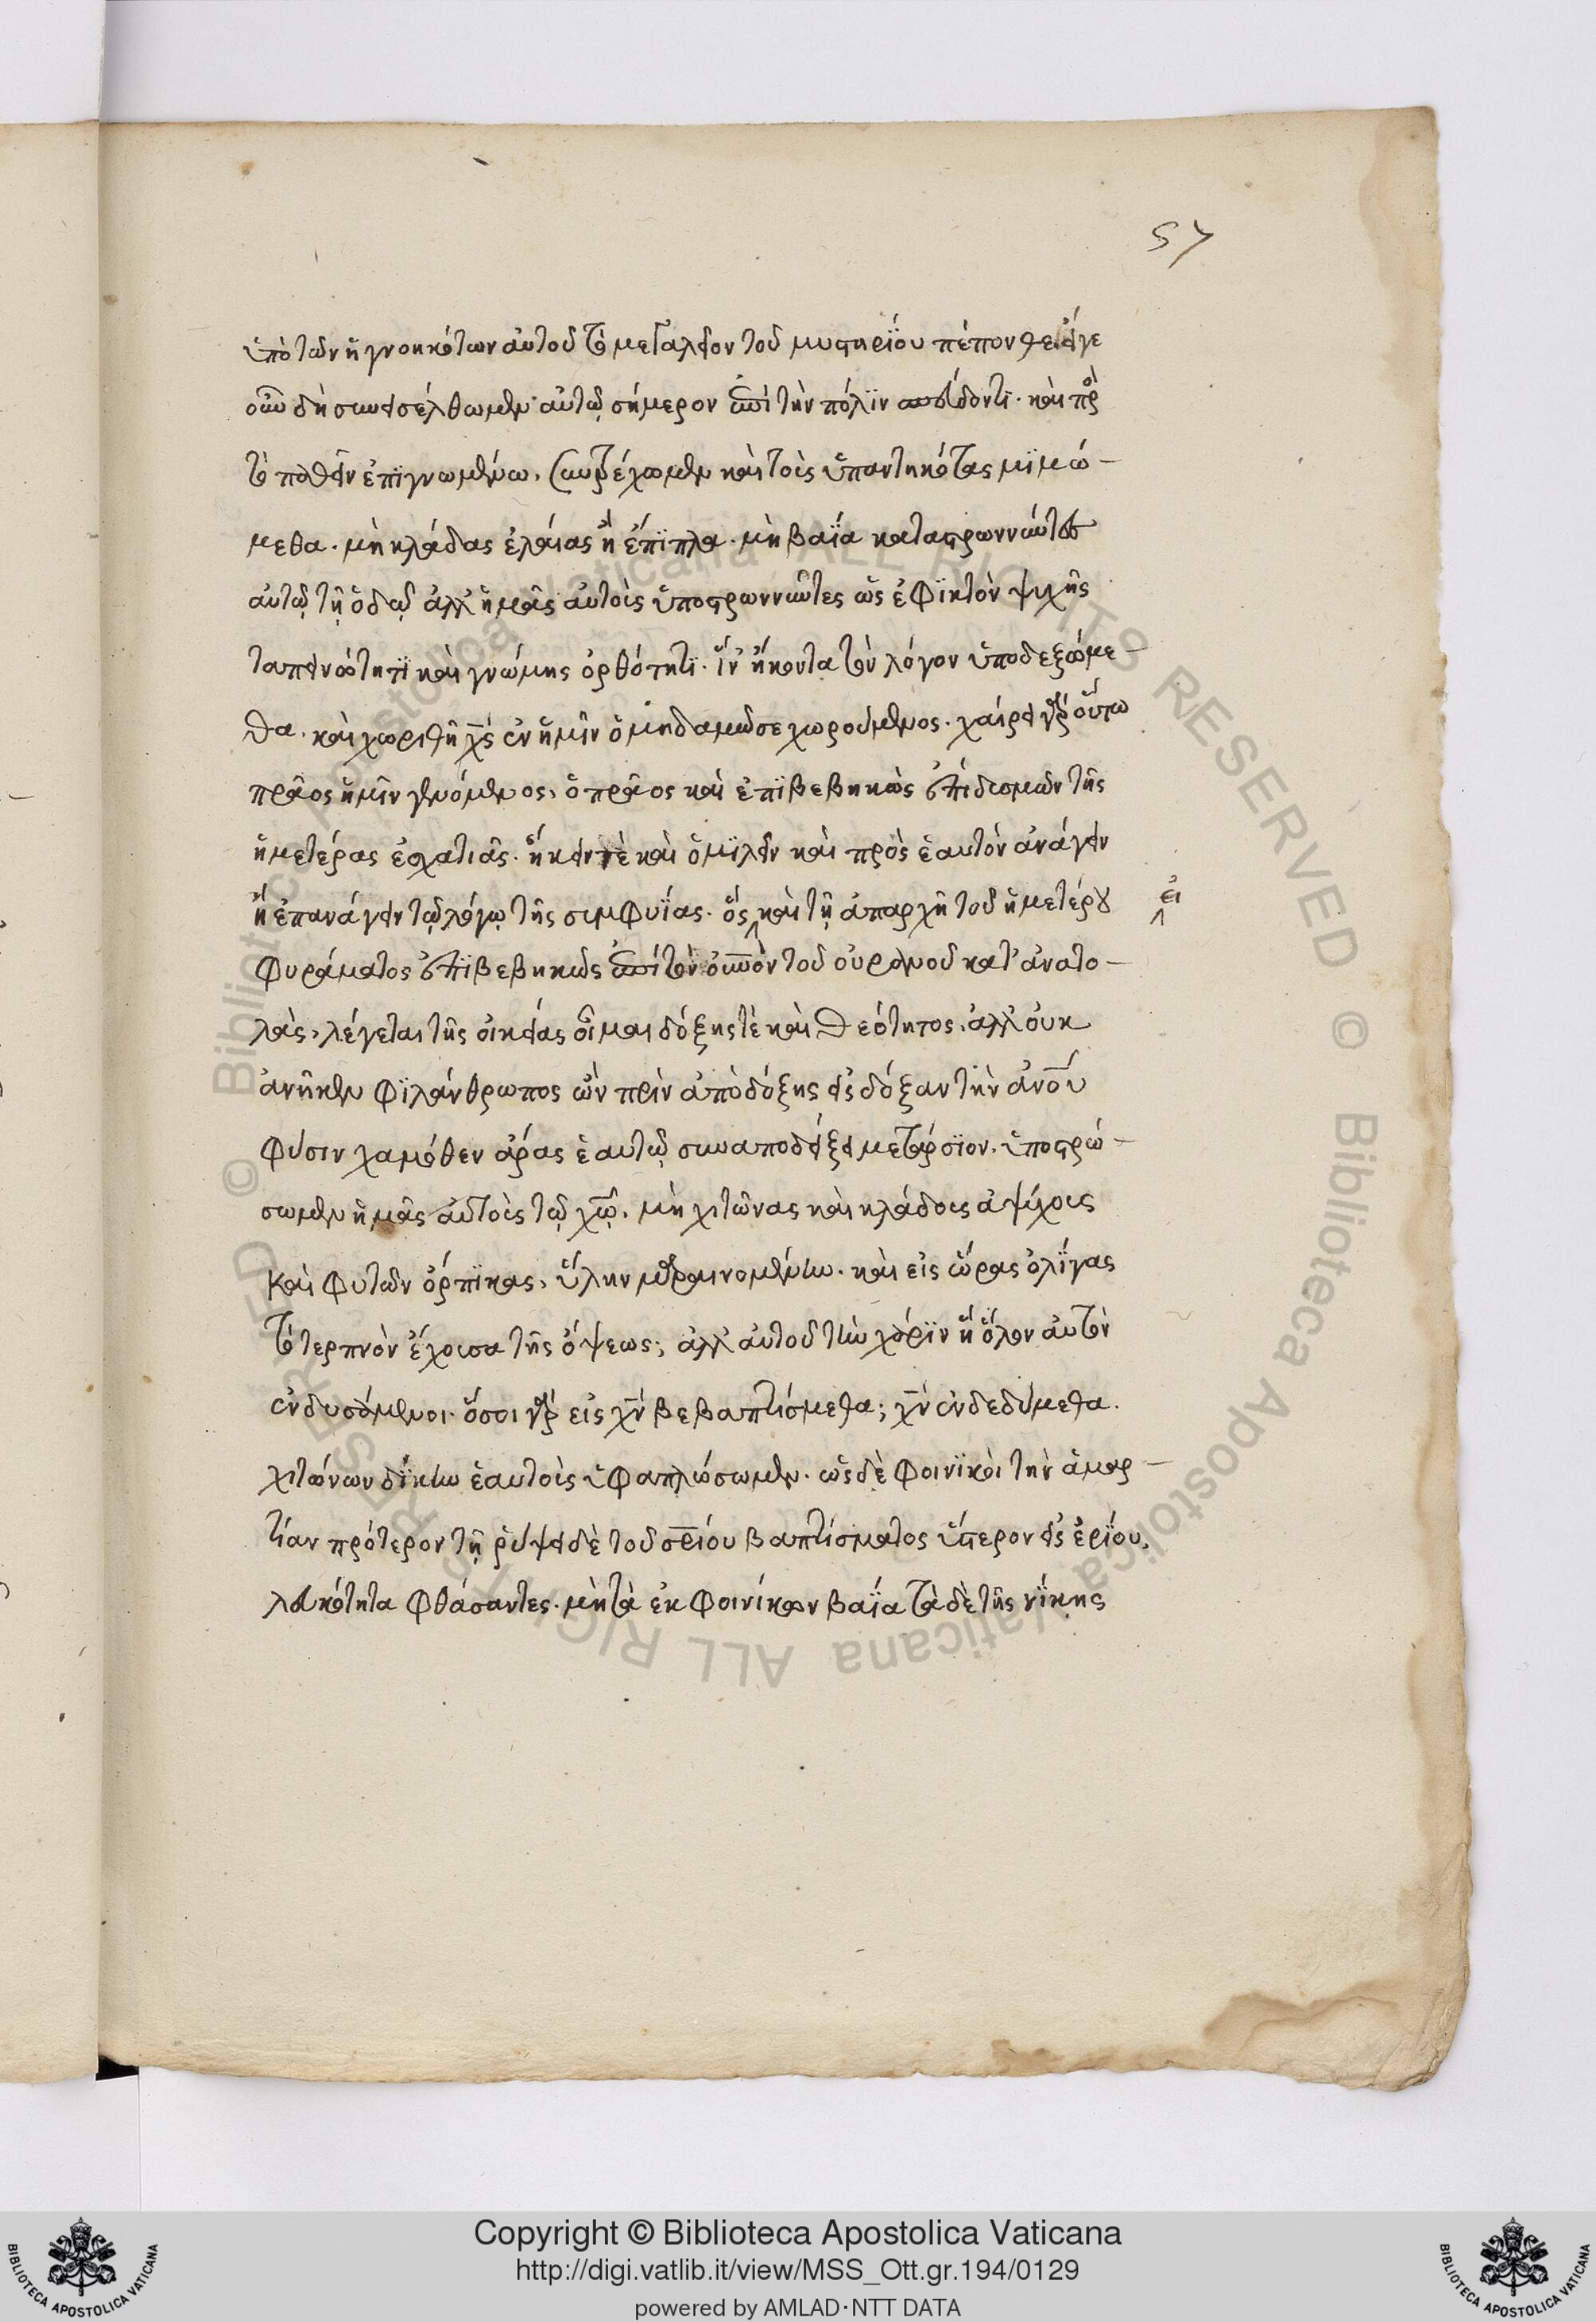 57
ὑπὸ τῶν ἠγνοηκότων αὐτοῦ τὸ μεγαλεῖον τοῦ μυστηρίου πέπονθε εἴγε
οὖν δὴ συνεισέλθωμεν αὐτῷ σήμερον ἐπὶ τὴν πόλϊν σπεύδοντϊ· καὶ πρὸς
τὸ παθεῖν ἐπϊγνωμένω. συντρέχωμεν καὶ τοὺς ὑπαντηκότας μϊμώ-
μεθα. μὴ κλάδας ἐλαίας ἢ ἔπϊπλα· μὴ βαΐα καταστρωννύντες
αὐτῷ τῇ ὁδῷ ἀλλ' ἡμᾶς αὐτοὺς ὑποστρωννῦντες ὡς ἐφϊκτὸν ψυχῆς
ταπεινότητϊ καὶ γνώμης ὀρθότητϊ· ἵν' ἥκοντα τὸν λόγον ὑποδεξώμε-
θα. καὶ χωρισθῆ χς ἐν ἡμῖν ὁ μηδαμῶσε χωρούμενος. χαίρει γὰρ οὕτω
πρᾶος ἡμῖν γενόμενος, ὁ πρᾶος καὶ ἐπϊβεβηκὼς ἐπὶ δυσμῶν τῆς
ἡμετέρας ἐσχατιᾶς· ἥκειν τὲ καὶ ὁμϊλεῖν καὶ πρὸς ἑαυτὸν ἀνάγειν
ἢ ἐπανάγειν τῷ λόγῳ τῆς συμφυΐας. ὃς καὶ τῇ ἀπαρχῇ τοῦ ἡμετέρου
εἰ
φυράματος ἐπϊβεβηκὼς ἐπὶ τὸν οὐνὸν τοῦ οὐρανοῦ κατ' ἀνατο-
λὰς, λέγεται τῆς οἰκείας οἶμαι δόξης τὲ καὶ θεότητος. ἀλλ' οὐκ
ἀνῆκεν φϊλάνθρωπος ὢν πρὶν ἀπὸ δόξης εἰς δόξαν τὴν ἀνου
φύσιν χαμόθεν ἄρας ἑαυτῷ συναποδείξει μετάρσϊον. ὑποστρώ-
σωμεν ἡμᾶς αὐτοὺς τῷ χῷ. μὴ χιτῶνας καὶ κλάδους ἀψύχους
καὶ φυτῶν ὄρπϊκας, ὕλην μαραινομένην. καὶ εἰς ὥρας ὀλίγας
τὸ τερπνὸν ἔχουσα τῆς ὄψεως; ἀλλ' αὐτοῦ τὴν χάρϊν ἢ ὅλον αὐτὸν
ἐνδυσάμενοι. ὅσοι γὰρ εἰς χν βεβαπτίσμεθα; χν ἐνδεδύμεθα.
χιτώνων δίκην ἑαυτοὺς ὑφαπλώσωμεν. ὡς δὲ φοινϊκοὶ τὴν ἁμαρ-
τίαν πρότερον τῇ ῥύψει δὲ τοῦ σριου βαπτίσματος ὕστερον εἰς ἐρίου.
λευκότητα φθάσαντες. μὴ τὰ ἐκ φοινίκων βαΐα τὰ δὲ τῆς νίκης
Copyright © Biblioteca Apostolica Vaticana
http://digi.vatlib.it/view/MSS_Ott.gr.194/0129
powered by AMLAD·NTT DATA